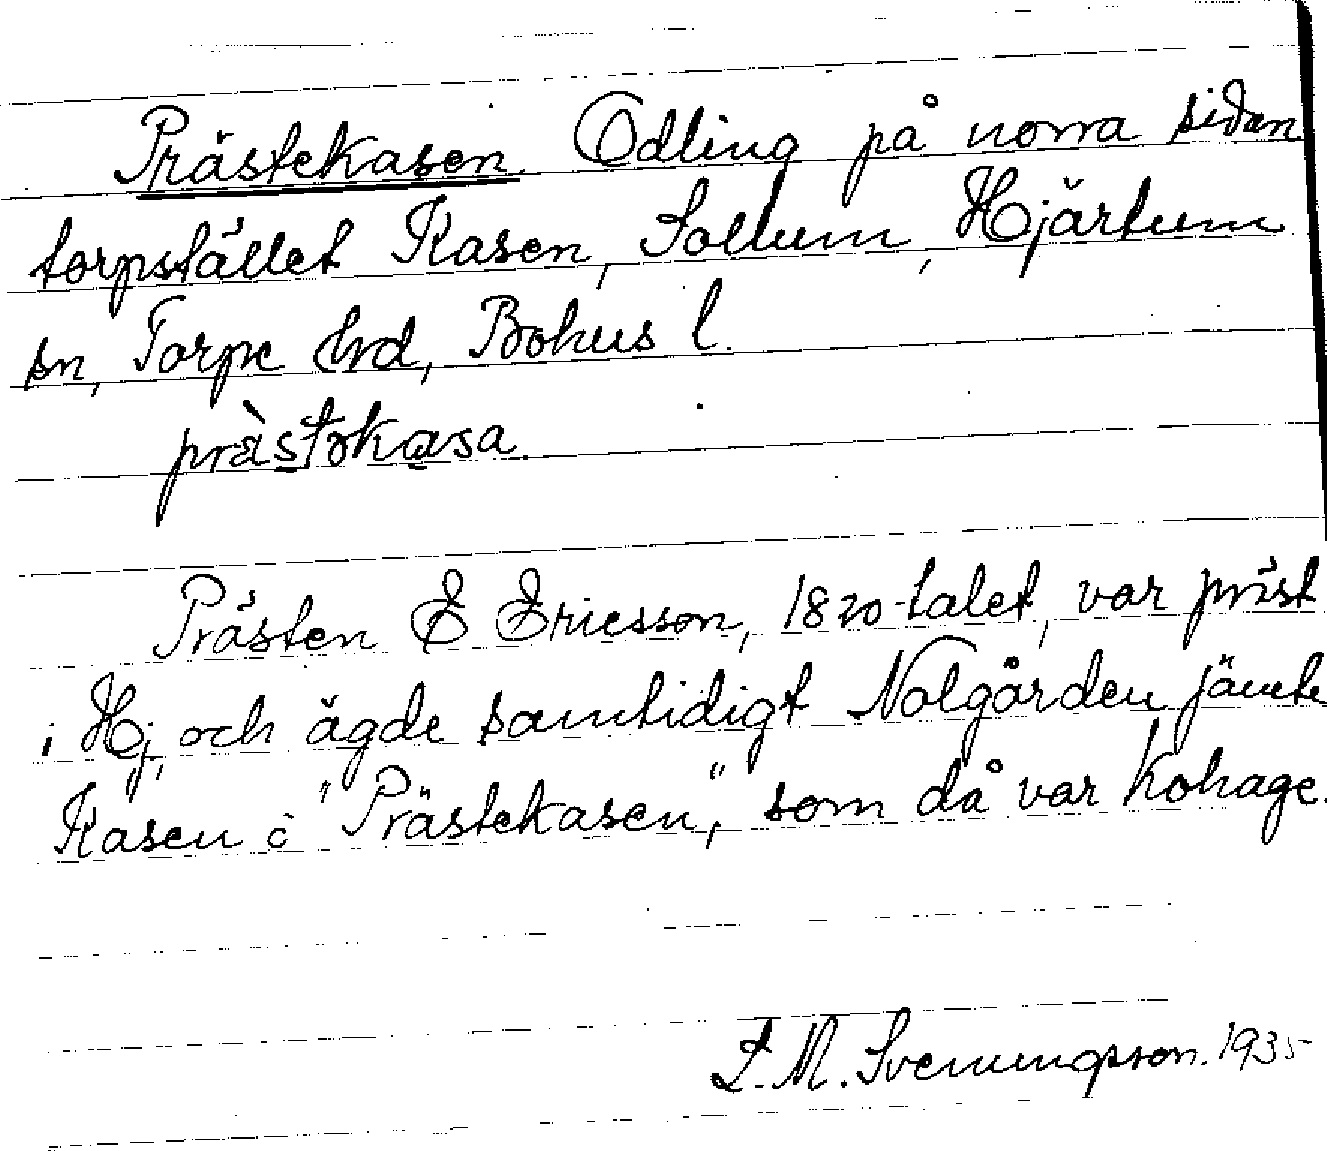 Prästekasen. Odling på norra sidan
torpstället Kasen, Sollum, Hjärtum
sn, Torpe hrd, Bohus l.
prästəkasa.
Prästen E Ericsson, 1820-talet, var präst
i Hj, och ägde samtidigt Nolgården jämte
Kasen o "Prästekasen", som då var kohage.
L. M. Svenungsson. 1935